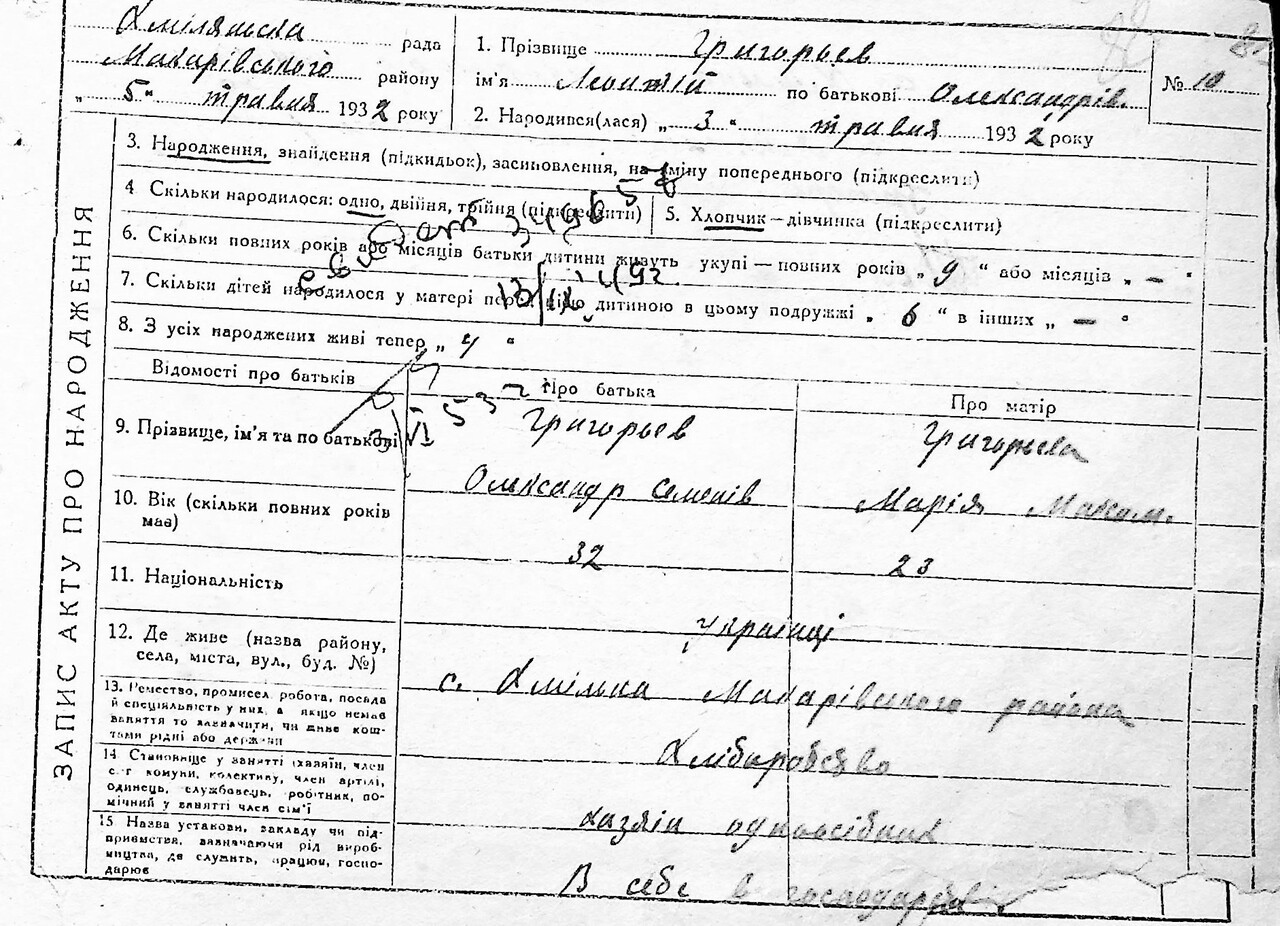 Хмілянська рада
Макарівського району
„ 5 " травня 1932 року
1. Прізвище Григорьев
ім'я Леонтій по батькові Олександрів.
№ 10
2. Народився(лася) „ 3 " травня 1932 року
ЗАПИС АКТУ ПРО НАРОДЖЕННЯ
3. Народження, знайдення (підкидьок), засиновлення, на зміну попереднього (підкреслити)
4 Скільки народилося: одно, двійня, трійня (підкреслити)
5. Хлопчик — дівчинка (підкреслити)
6. Скільки повних років або місяців батьки дитини живуть укупі — повних років „ 9 " або місяців „ — "
7. Скільки дітей народилося у матері перед цією дитиною в цьому подружжі „ 6 " в інших „ — "
8. З усіх народжених живі тепер „ 4 "
Відомості про батьків
Про батька
Про матір
9. Прізвище, ім'я та по батькові
Григорьев
Григорьева
Олександр Семенів
Марія Максим.
10. Вік (скільки повних років має)
32
23
11. Національність
Українці
12. Де живе (назва району,
села, міста, вул., буд. №)
с. Хмільна Макарівського района
13. Ремество, промисел, робота, посада
й спеціяльність у них, а якщо немає
заняття то зазначити, чи живе кош-
тами рідні або держави
Хліборобство
14. Становище у занятті (хазяїн, член
с.-г комуни, колективу, член артілі,
одинець, службовець, робітник, по-
мічний у занятті член сім'ї
хазяін одноосібник
15 Назва установи, закладу чи під-
приємства, зазначаючи рід вироб-
ництва, де служить, працює, госпо-
дарює
В себе в господарстві